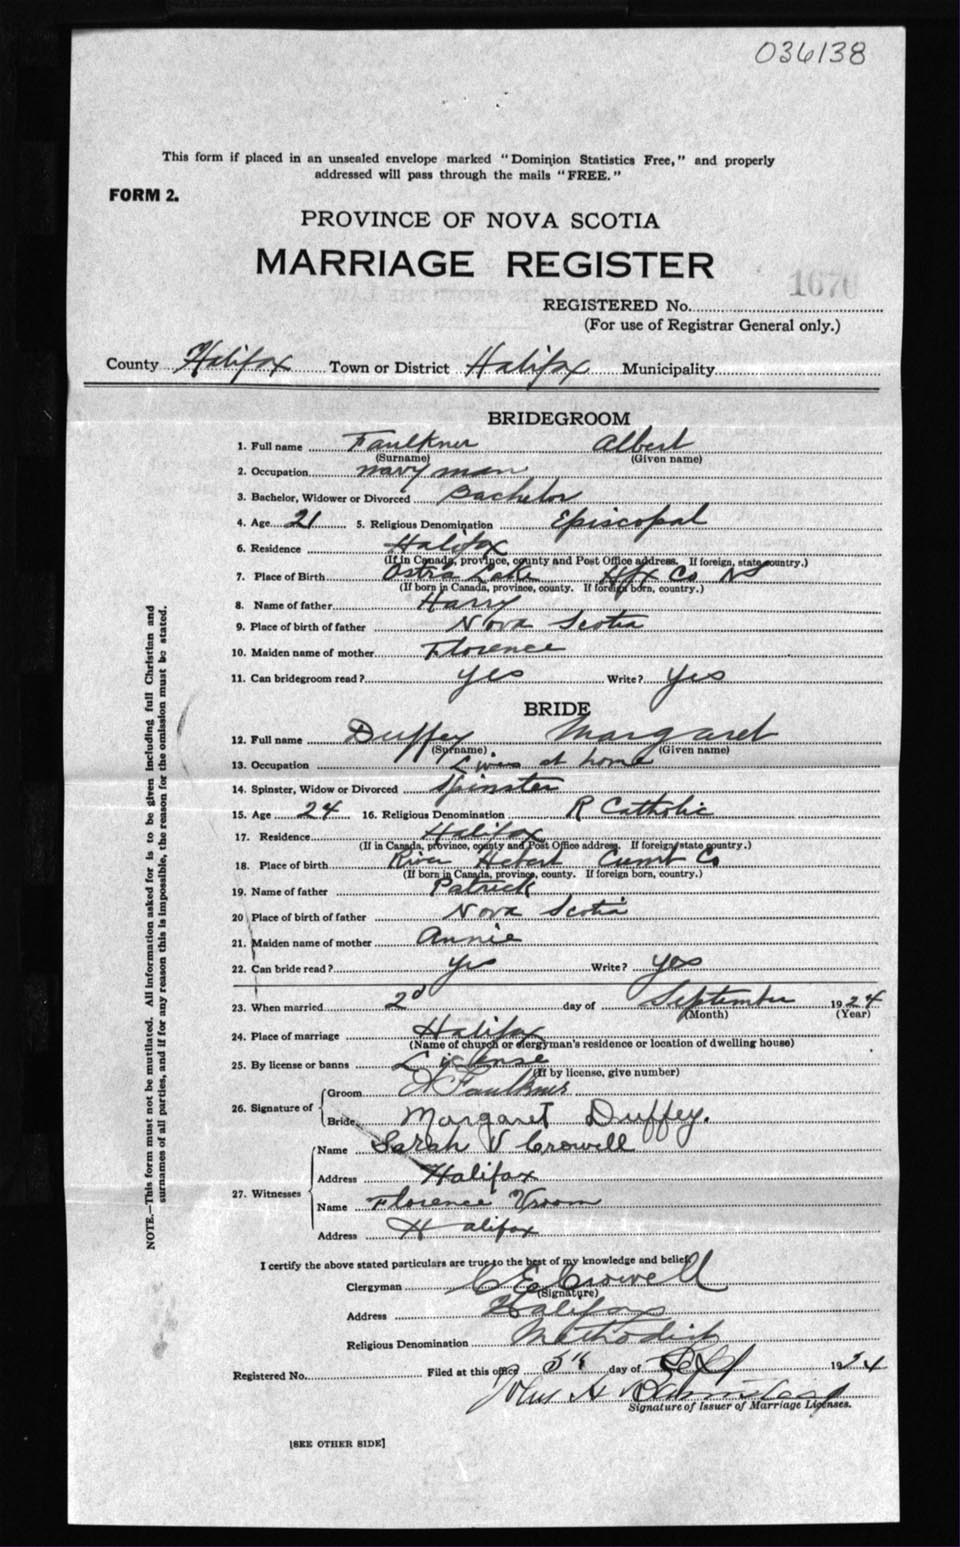 036138
This form if placed in an unsealed envelope marked "Dominion Statistics Free," and properly
addressed will pass through the mails "FREE."
FORM 2.
PROVINCE OF NOVA SCOTIA
MARRIAGE REGISTER
1670
REGISTERED No.
(For use of Registrar General only.)
County Halifax Town or District Halifax Municipality
BRIDEGROOM
1. Full name Faulkner Albert
(Surname) (Given name)
2. Occupation navy man
3. Bachelor, Widower or Divorced Bachelor
4. Age 21 5. Religious Denomination Episcopal
6. Residence Halifax
(If in Canada, province, county and Post Office address. If foreign, state country.)
7. Place of Birth Lake Hfx Co NS
(If born in Canada, province, county. If foreign born, country.)
8. Name of father Harry
9. Place of birth of father Nova Scotia
10. Maiden name of mother Florence
11. Can bridegroom read? yes Write? yes
BRIDE
12. Full name Duffey Margaret
(Surname) (Given name)
13. Occupation Lives at home
14. Spinster, Widow or Divorced Spinster
15. Age 24 16. Religious Denomination R Catholic
17. Residence Halifax
(If in Canada, province, county and Post Office address. If foreign state country.)
18. Place of birth River Hebert Cumb Co
(If born in Canada, province, county. If foreign born, country.)
19. Name of father Patrick
20 Place of birth of father Nova Scotia
21. Maiden name of mother Annie
22. Can bride read? yes Write? yes
23. When married 2d day of September 1924
(Month) (Year)
24. Place of marriage Halifax
(Name of church or clergyman's residence or location of dwelling house)
25. By license or banns License
(If by license, give number)
26. Signature of Groom Faulkner
Bride Margaret Duffey.
27. Witnesses Name Sarah V Crowell
Address Halifax
Name Florence Vroom
Address Halifax
I certify the above stated particulars are true to the best of my knowledge and belief.
Clergyman C E Crowell
(Signature)
Address Halifax
Religious Denomination Methodist
Registered No. Filed at this office 5th day of Sep 1924
John A
Signature of Issuer of Marriage Licenses.
[SEE OTHER SIDE]
NOTE.—This form must not be mutilated. All information asked for is to be given including full Christian and
surnames of all parties, and if for any reason this is impossible, the reason for the omission must be stated.